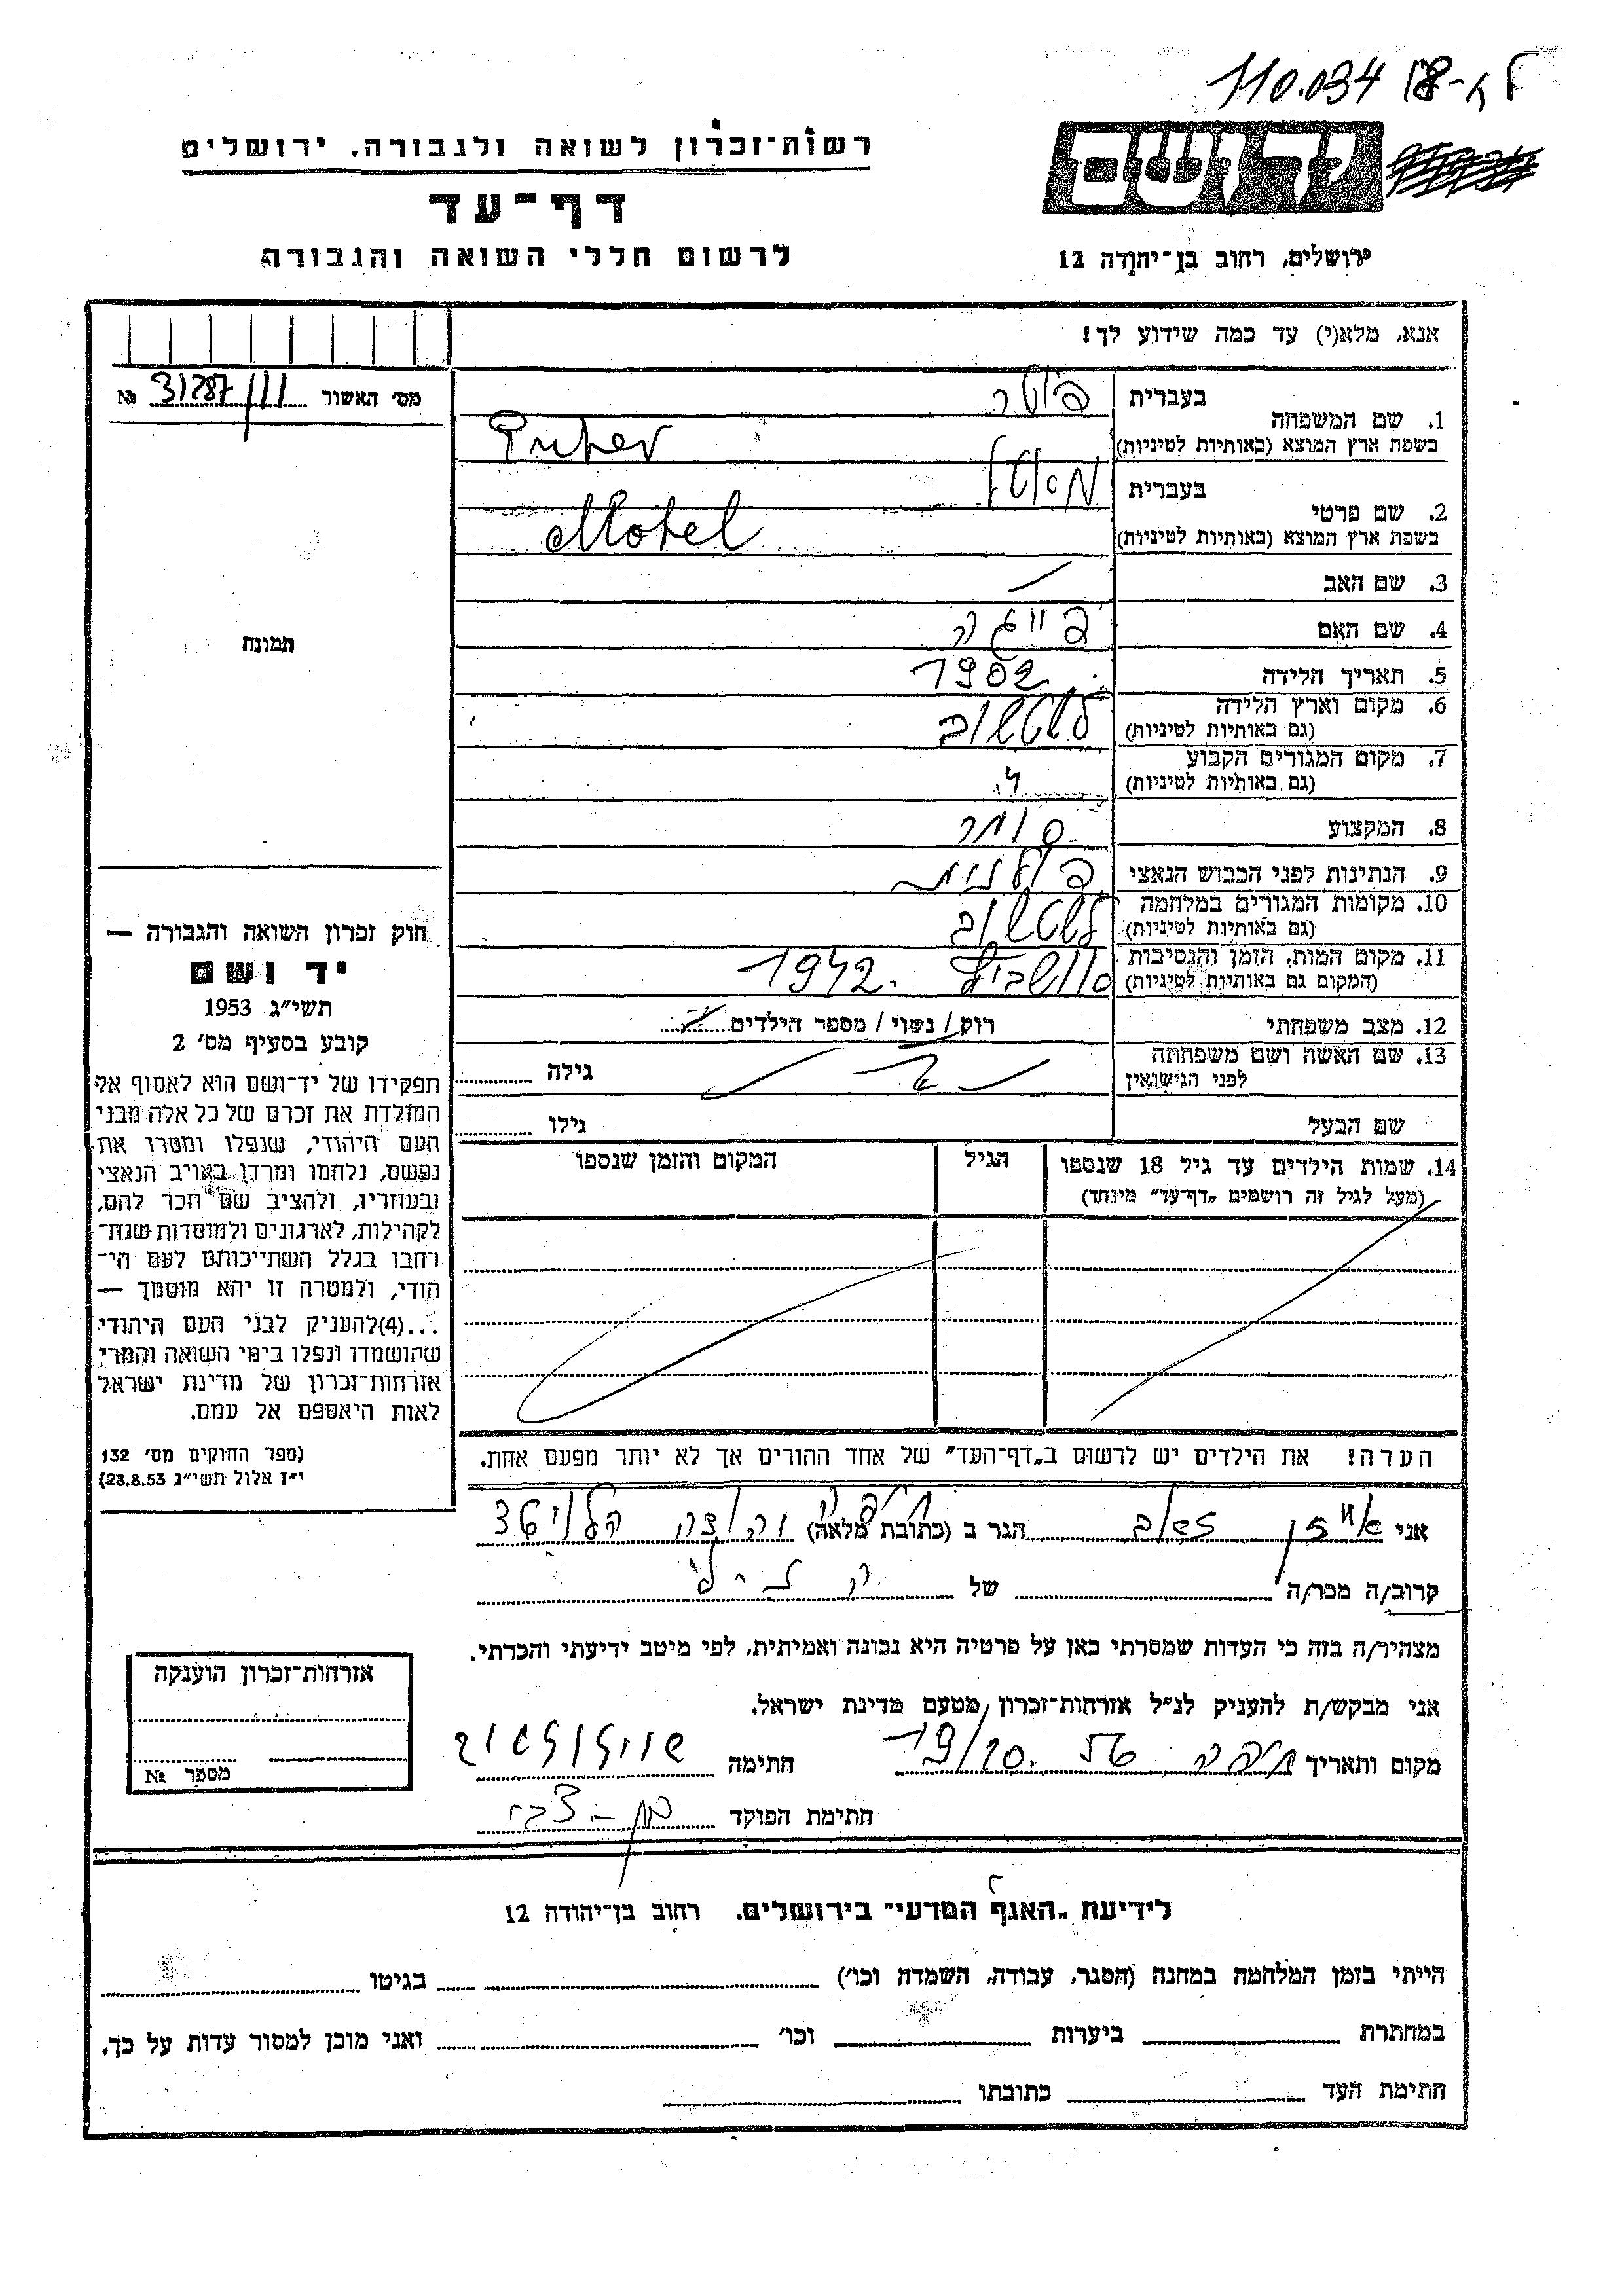 110.034 18-
רשות־זכרון לשואה ולגבורה. ירושלים
דף־עד
לרשום חללי השואה והגבורה
ירושלים, רחוב בן־יהודה 12
אנא, מלא(י) עד כמה שידוע לך!
מס׳ האשור № 31287/11
1. שם המשפחה
בעברית פוטר
בשפת ארץ המוצא (באותיות לטיניות) Puter
2. שם פרטי
בעברית מוטל
בשפת ארץ המוצא (באותיות לטיניות) Motel
3. שם האב
4. שם האם פייגה
5. תאריך הלידה 1902
6. מקום וארץ הלידה
(גם באותיות לטיניות)
7. מקום המגורים הקבוע
(גם באותיות לטיניות)
8. המקצוע סוחר
9. הנתינות לפני הכבוש הנאצי פולנית
10. מקומות המגורים במלחמה
(גם באותיות לטיניות)
11. מקום המות, הזמן והנסיבות 1942.
(המקום גם באותיות לטיניות)
12. מצב משפחתי רוק / נשוי / מספר הילדים
13. שם האשה ושם משפחתה
לפני הנישואין
גילה
שם הבעל גילו
14. שמות הילדים עד גיל 18 שנספו הגיל המקום והזמן שנספו
(מעל לגיל זה רושמים „דף־עד״ מיוחד)
הערה! את הילדים יש לרשום ב„דף־העד״ של אחד ההורים אך לא יותר מפעם אחת.
תמונה
חוק זכרון השואה והגבורה —
יד ושם
תשי״ג 1953
קובע בסעיף מס׳ 2
תפקידו של יד־ושם הוא לאסוף אל
המולדת את זכרם של כל אלה מבני
העם היהודי, שנפלו ומסרו את
נפשם, נלחמו ומרדו באויב הנאצי
ובעוזריו, ולהציב שם וזכר להם,
לקהילות, לארגונים ולמוסדות שנח־
רחבו בגלל השתייכותם לעם הי־
הודי, ולמטרה זו יהא מוסמך —
...(4)להעניק לבני העם היהודי
שהושמדו ונפלו בימי השואה והמרי
אזרחות־זכרון של מדינת ישראל
לאות היאספם אל עמם.
(ספר החוקים מס׳ 132
י״ז אלול תשי״ג 28.8.53)
אני הגר ב (כתובת מלאה) חיפה
קרוב/ה מכר/ה של
מצהיר/ה בזה כי העדות שמסרתי כאן על פרטיה היא נכונה ואמיתית, לפי מיטב ידיעתי והכרתי.
אני מבקש/ת להעניק לנ״ל אזרחות־זכרון מטעם מדינת ישראל.
מקום ותאריך חיפה 19/10. 56 חתימה
חתימת הפוקד
אזרחות־זכרון הוענקה
מספר №
לידיעת „האגף המדעי״ בירושלים. רחוב בן־יהודה 12
הייתי בזמן המלחמה במחנה (הסגר, עבודה, השמדה וכו׳) בגיטו
במחתרת ביערות וכו׳ ואני מוכן למסור עדות על כך.
חתימת העד כתובתו